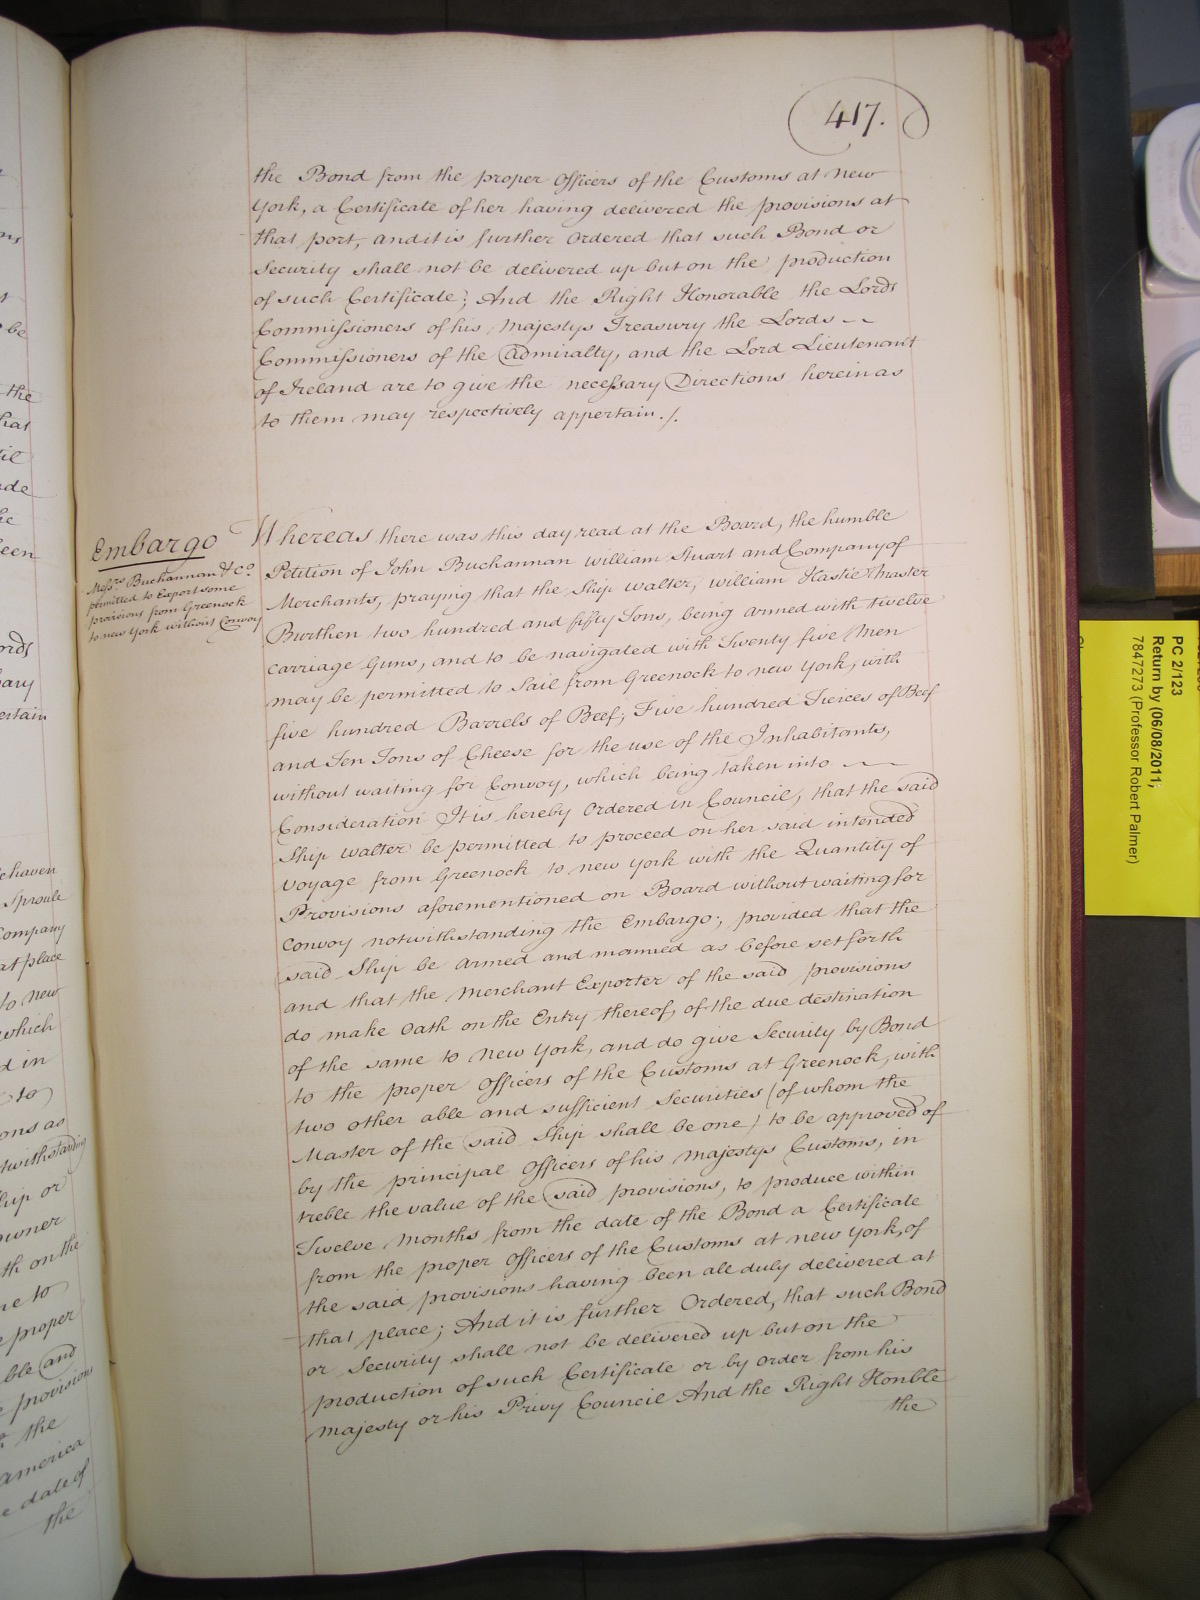 417.
the Bond from the proper Officers of the Customs at new
York, a Certificate of her having delivered the provisions at
that port, and it is further Ordered that such Bond or
Security shall not be delivered up but on the production
of such Certificate; And the Right Honorable the Lords
Commissioners of his Majestys Treasury the Lords
Commissioners of the Admiralty, and the Lord Lieutenant
of Ireland are to give the necessary Directions herein as
to them may respectively appertain. /.
Embargo
Messrs. Buchannan & Co.
permitted to Export some
provisions from Greenock
to new York without Convoy
Whereas there was this day read at the Board, the humble
Petition of John Buchannan William Stuart and Company of
Merchants, praying that the Ship Walter, William Hastie Master
Burthen two hundred and fifty Tons, being armed with twelve
carriage Guns, and to be navigated with Twenty five Men
may be permitted to Sail from Greenock to new York, with
five hundred Barrels of Beef; Five hundred Tierces of Beef
and Ten Tons of Cheese for the use of the Inhabitants,
without waiting for Convoy, which being taken into
Consideration It is hereby Ordered in Council, that the said
Ship Walter be permitted to proceed on her said intended
Voyage from Greenock to new York with the Quantity of
Provisions aforementioned on Board without waiting for
Convoy notwithstanding the Embargo; provided that the
said Ship be armed and manned as before set forth
and that the Merchant Exporter of the said provisions
do make Oath on the Entry thereof, of the due destination
of the same to New York, and do give Security by Bond
to the proper Officers of the Customs at Greenock, with
two other able and sufficient Securities (of whom the
Master of the said Ship shall be one) to be approved of
by the principal Officers of his Majestys Customs, in
treble the value of the said provisions, to produce within
Twelve Months from the date of the Bond a Certificate
from the proper Officers of the Customs at new York, of
the said provisions having been all duly delivered at
that place; And it is further Ordered, that such Bond
or Security shall not be delivered up but on the
production of such Certificate or by Order from his
Majesty or his Privy Council And the Right Honble
the
PC 2/123
Return by (06/08/2011;
7847273 (Professor Robert Palmer)